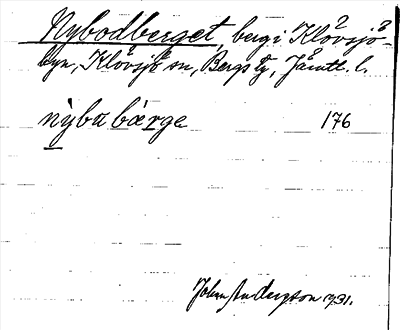 Nybodberget, berg i Klövsjö-
byn, Klövsjö sn, Bergs tg, Jämtl. l.
nỳba bærge 176
Johan Anderson 1931.